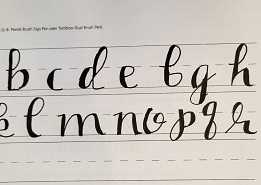 (z. B. Pentel Brush Sign Pen oder Tombow Dual Brush Pen)
b c d e f g h
l m n o p q r